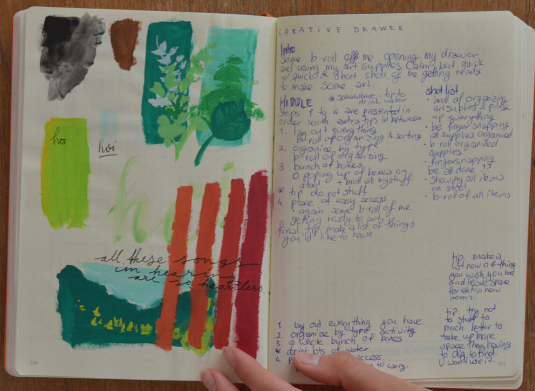 hoi
hoi
all these songs
im hearing
are so heartless
CREATIVE DRAWER
Intro
Some b-roll off me opening my drawer
and using my art supplies calm but quick
quick & short shots of me getting ready
to make some art
MIDDLE
* somewhere tip to
drink water
steps 1 to 4 are presented in
order with extra tip in between
1. lay out everything
b-roll of organizing & sorting
2. organize by type
b-roll of organizing
3. bunch of boxes
popping up of boxes on
+ broll all my stuff
* tip do not stuff
4. place at easy access
- again some b-roll of me
getting ready to art
final tip, make a list of things
you'd like to have
shot list
art supplies
up everything
finger snapping
all supplies organised
b-roll organised
supplies
- fingersnapping
be all done
- showing all items
- b-roll of all items
tip make a
list now of things
you wish you had
and leave space
for extra new
items.
tip try not
to stuff to
much better to
take up more
space then having
to dig to find
u want
1. lay out everything you have
2. organise by type/activity
3. a whole bunch of boxes
* drink lots of water
access.